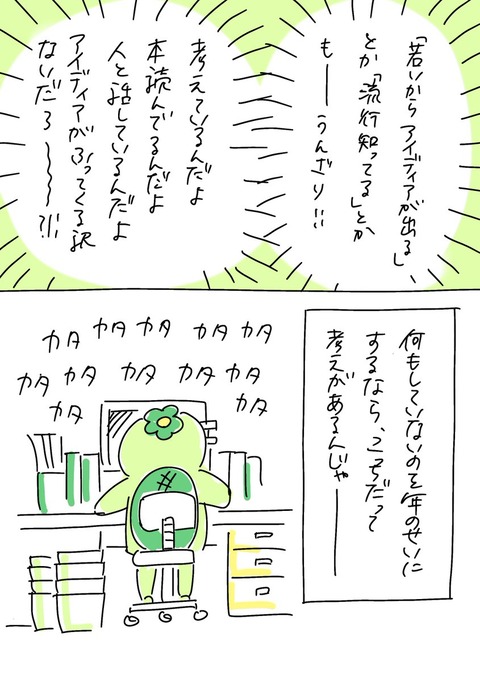 「若いからアイディアが出る」
とか「流行知ってる」とか
もーーうんざり!!
考えているんだよ
本読んでるんだよ
人と話しているんだよ
アイディアがふってくる訳
ないだろ〜〜〜?!!
何もしていないのを年のせいに
するなら、こっちだって
考えがあるんじゃーーー
カタ カタ カタ カタ カタ
カタ カタ カタ カタ カタ
カタ カタ